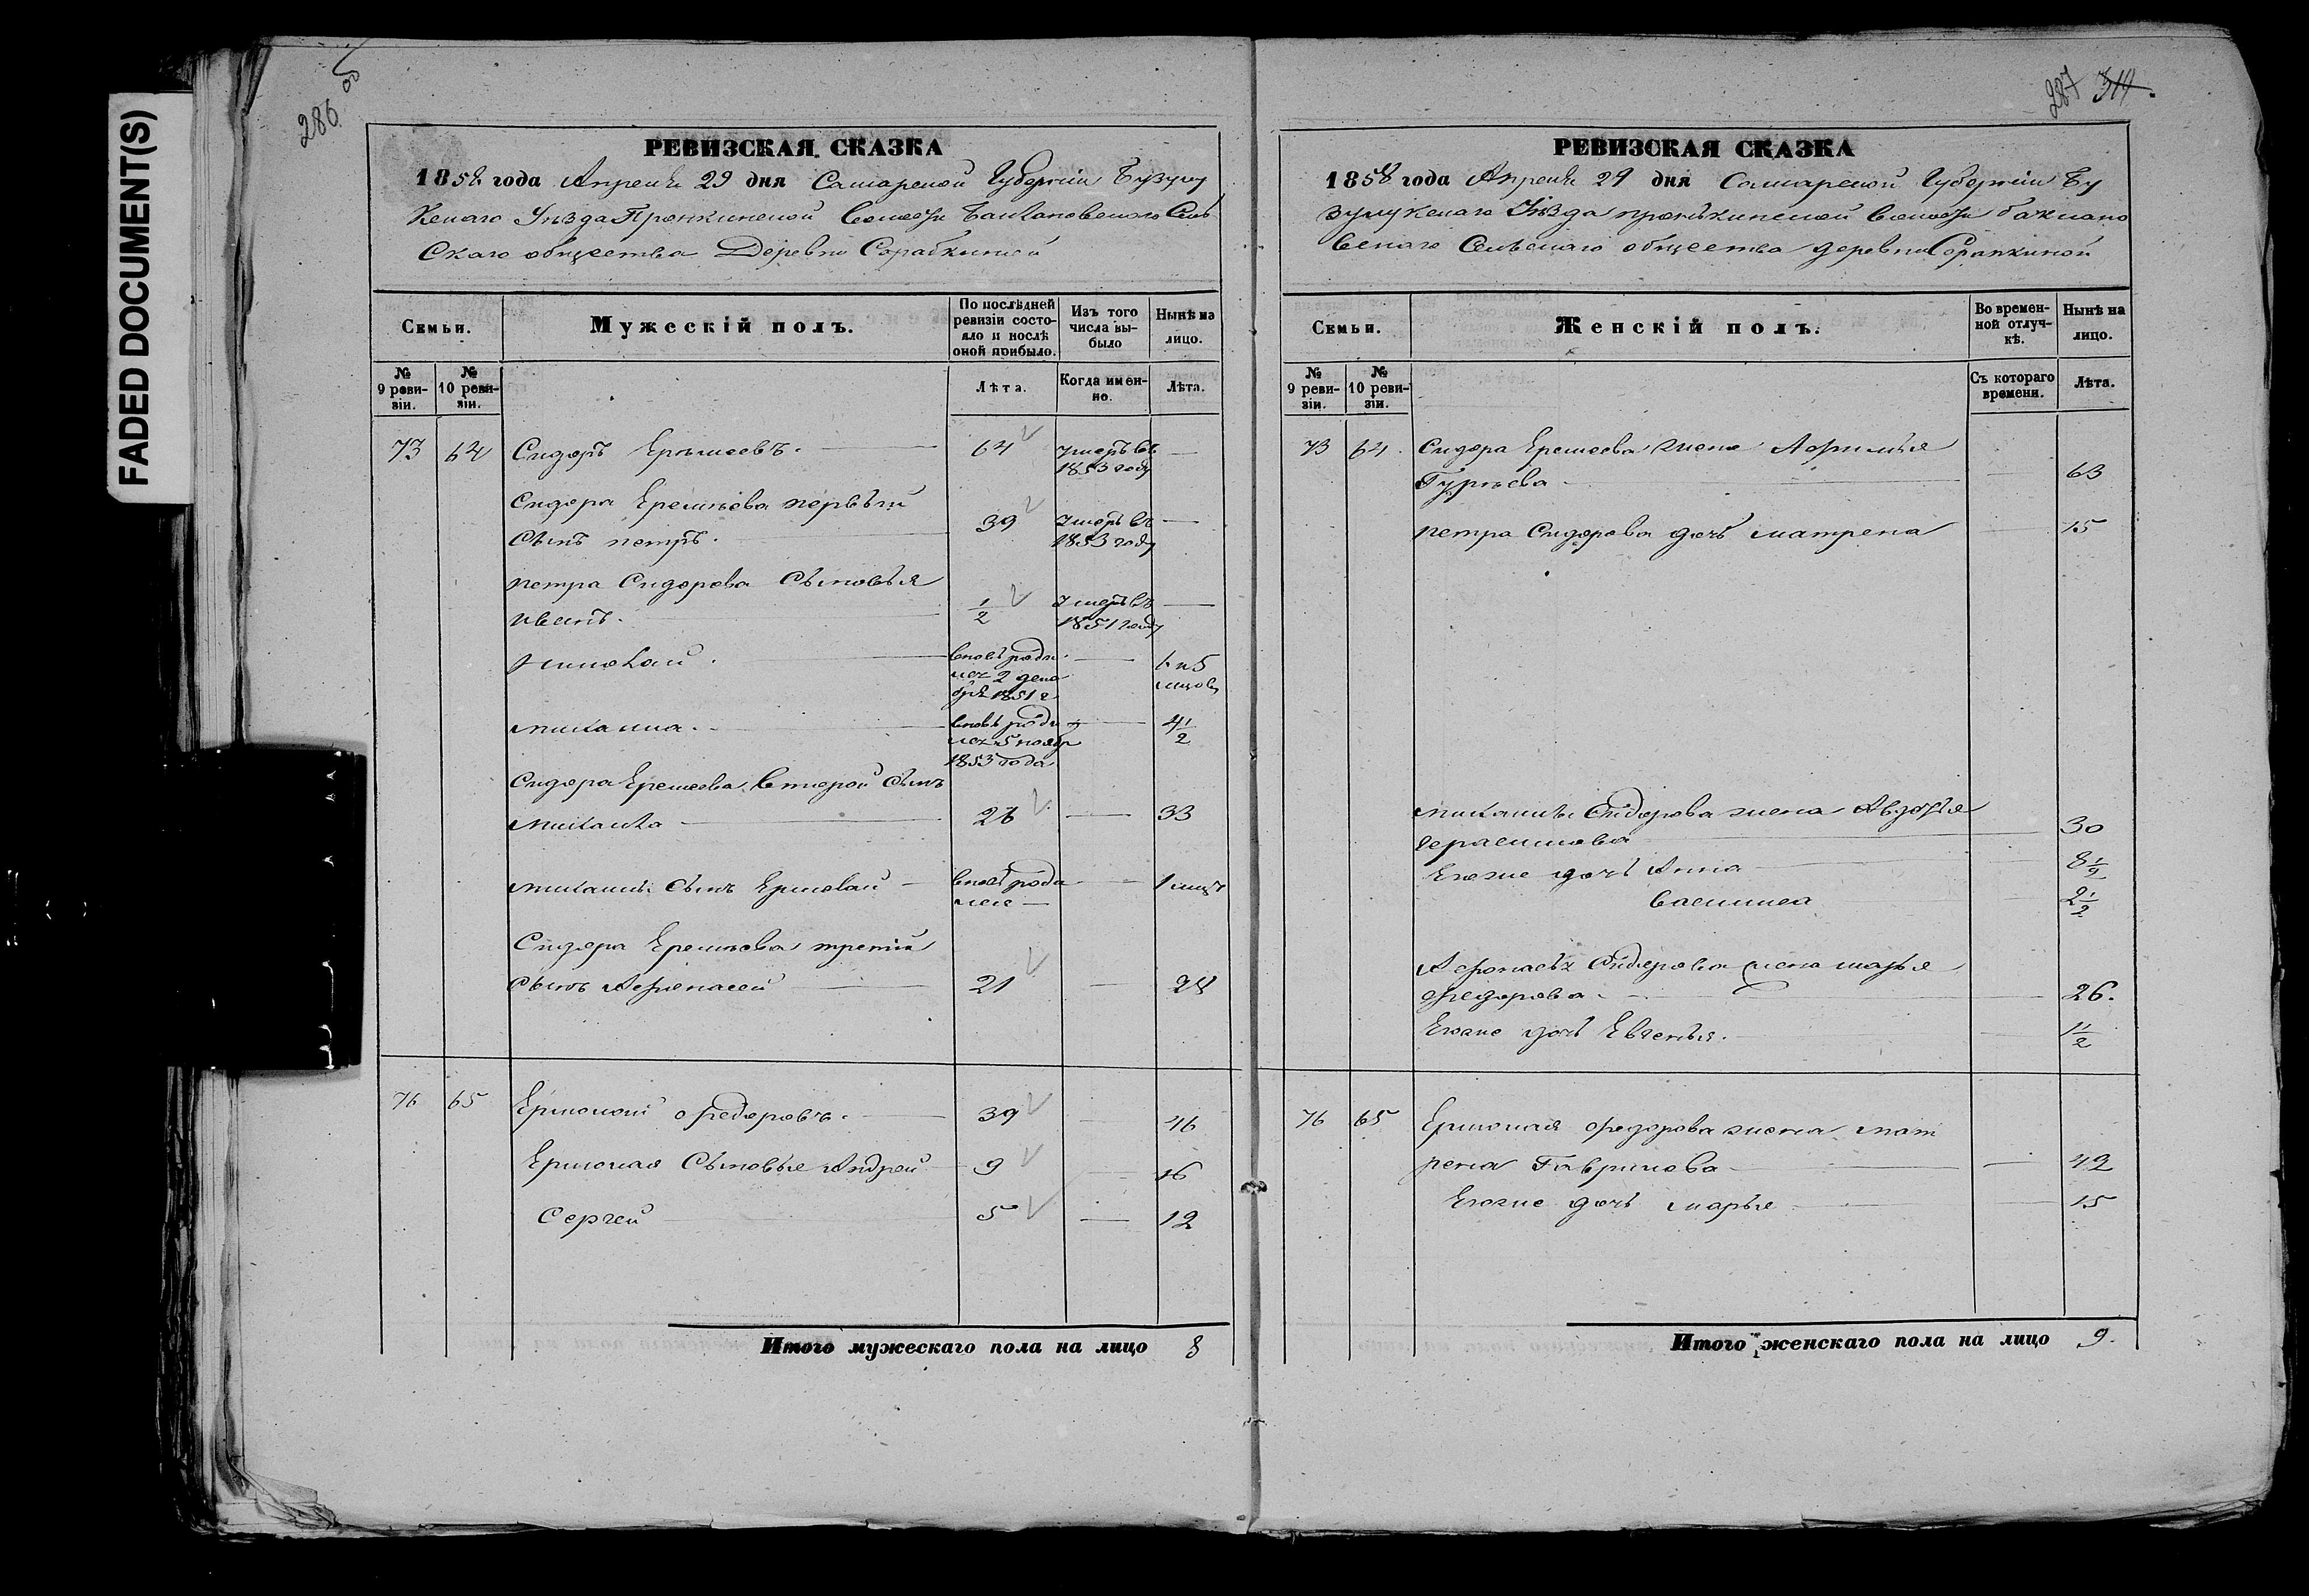 FADED DOCUMENT(S)
286 об
РЕВИЗСКАЯ СКАЗКА
1858 года Апреля 29 дня Самарской Губернiи Бузулу
кскаго Уѣзда Пронкинской волости Баклановскаго Сель
скаго общества Деревни Сорабкиной
Семьи.
Мужескій полъ.
По послѣдней ревизіи состояло и послѣ оной прибыло.
Изъ того числа выбыло
Нынѣ на лицо.
№ 9 ревизіи.
№ 10 ревизіи.
Лѣта.
Когда именно.
Лѣта.
73 64 Сидоръ Еремеевъ. 64 умеръ въ —
1853 году
Сидора Еремѣева первый
сынъ петръ. 39 умеръ въ —
1853 году
петра Сидорова сыновья
иванъ. 1/2 умеръ въ —
1851 году
николай. вновь роди — 6 и 5
лся 2 дека мѣсов
бря 1851 г
никита вновь роди — 4 1/2
лся 5 ноябр
1853 года
Сидора Еремеева второй сынъ
26 — 33
сынъ Ермолай вновь роди — 1 мѣсъ
лся —
Сидора Еремѣева третiй
сынъ Афонасей 21 — 28
76 65 Ермолай федоровъ. 39 — 46
Ермолая Сыновье Андрей 9 — 16
Сергей 5 — 12
Итого мужескаго пола на лицо 8
287 314.
РЕВИЗСКАЯ СКАЗКА
1858 года Апреля 29 дня Самарской Губернiи Бу
зулукскаго Уѣзда пронькинской волости баклано
вскаго Сельскаго общества деревни Сорапкиной
Семьи.
Женскій полъ.
Во временной отлучкѣ.
Нынѣ на лицо.
№ 9 ревизіи.
№ 10 ревизіи.
Съ котораго времени.
Лѣта.
73 64. Сидора Еремеева жена Афимья
Гурьева — 63
петра Сидорова дочь матрена — 15
Сидорова жена Авдотья
герасимова 30
Егоже дочь Анна 8 1/2
василиса 2 1/2
Афонасья Сидорова жена марья
федорова. 26.
Егоже дочь Евгенья. 1 1/2
76 65 Ермолая федорова жена мат
рена Гаврилова — 42
Егоже дочь марья 15
Итого женскаго пола на лицо 9.